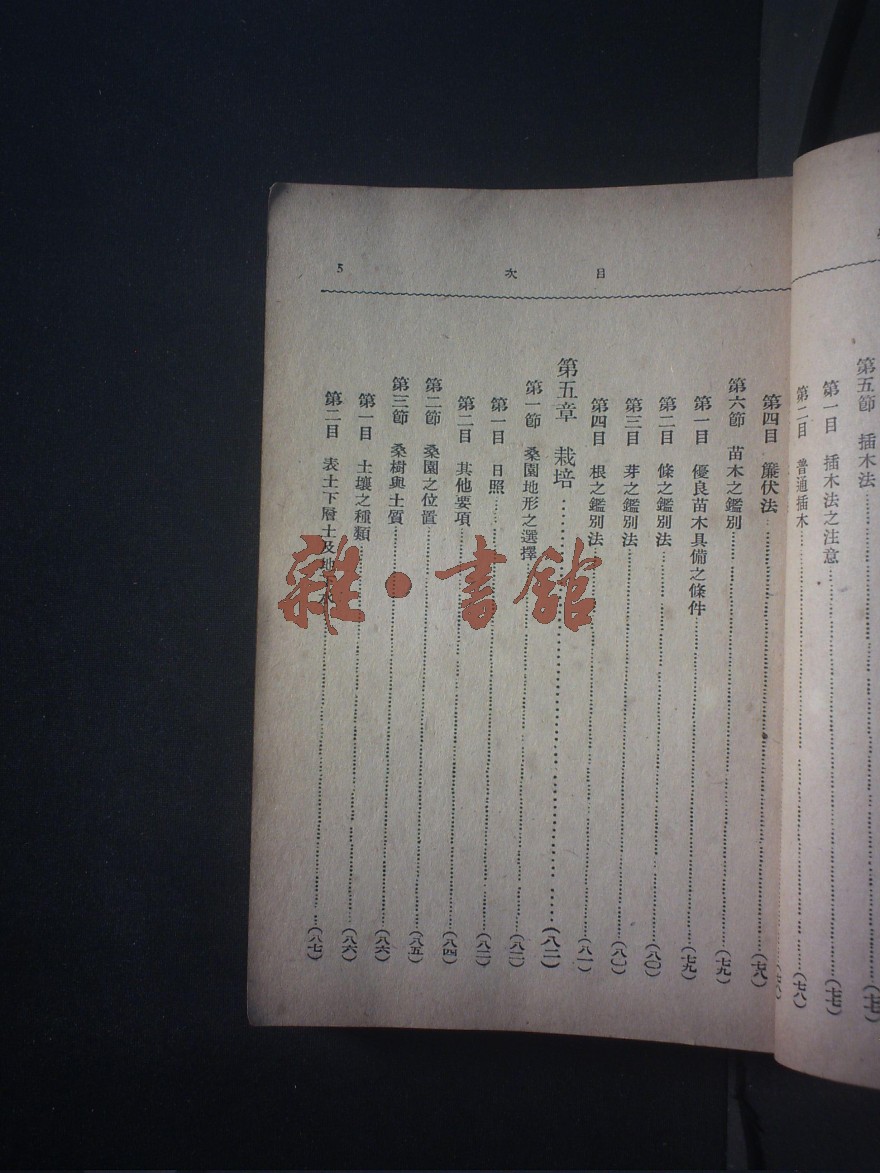 第五節 插木法……(七七)
第一目 插木法之注意……(七七)
第二目 普通插木……(七八)
目次 5
第四目 簾伏法……(七八)
第六節 苗木之鑑別……(七九)
第一目 優良苗木具備之條件……(七九)
第二目 條之鑑別法……(八〇)
第三目 芽之鑑別法……(八〇)
第四目 根之鑑別法……(八一)
第五章 栽培……(八二)
第一節 桑園地形之選擇……(八二)
第一目 日照……(八二)
第二目 其他要項……(八四)
第二節 桑園之位置……(八五)
第三節 桑樹與土質……(八六)
第一目 土壤之種類……(八六)
第二目 表土下層土及地下水……(八七)
雜·書館